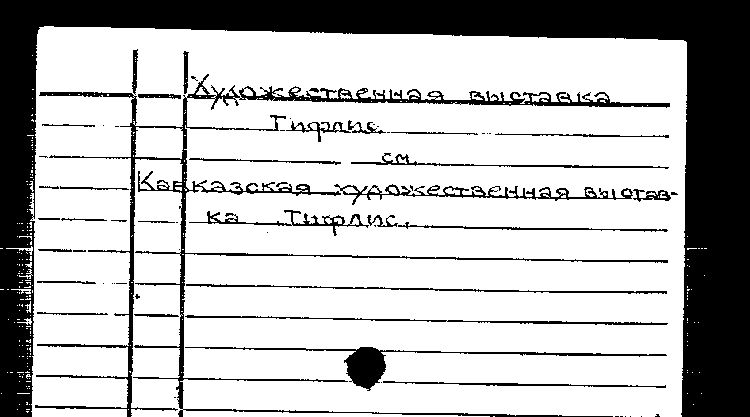 Художественная выставка
Тифлис.
см.
Кавказская художественная выстав-
ка Тифлис.